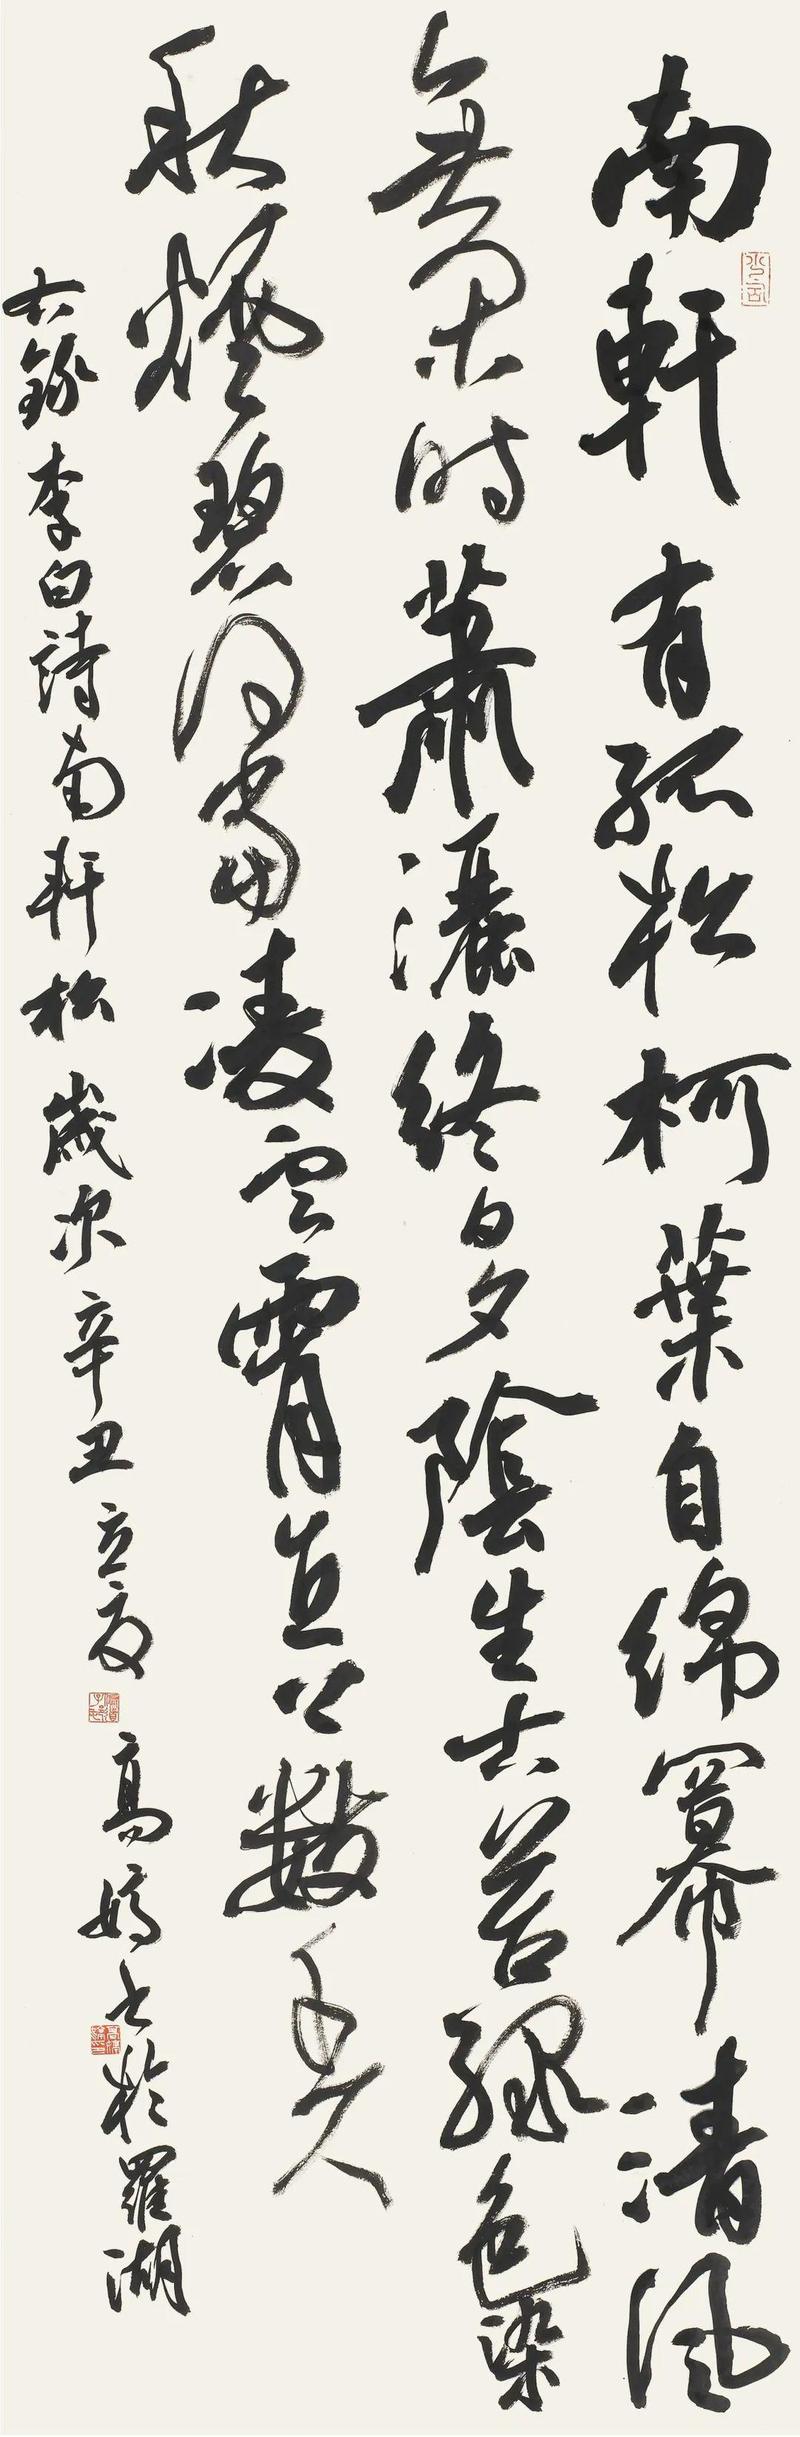 南軒有孤松柯葉自綿冪清風
無閑時蕭灑終日夕陰生古苔綠色染
秋煙碧何當凌雲霄直上數千尺
右錄李白詩南軒松歲次辛丑立夏高書於羅湖